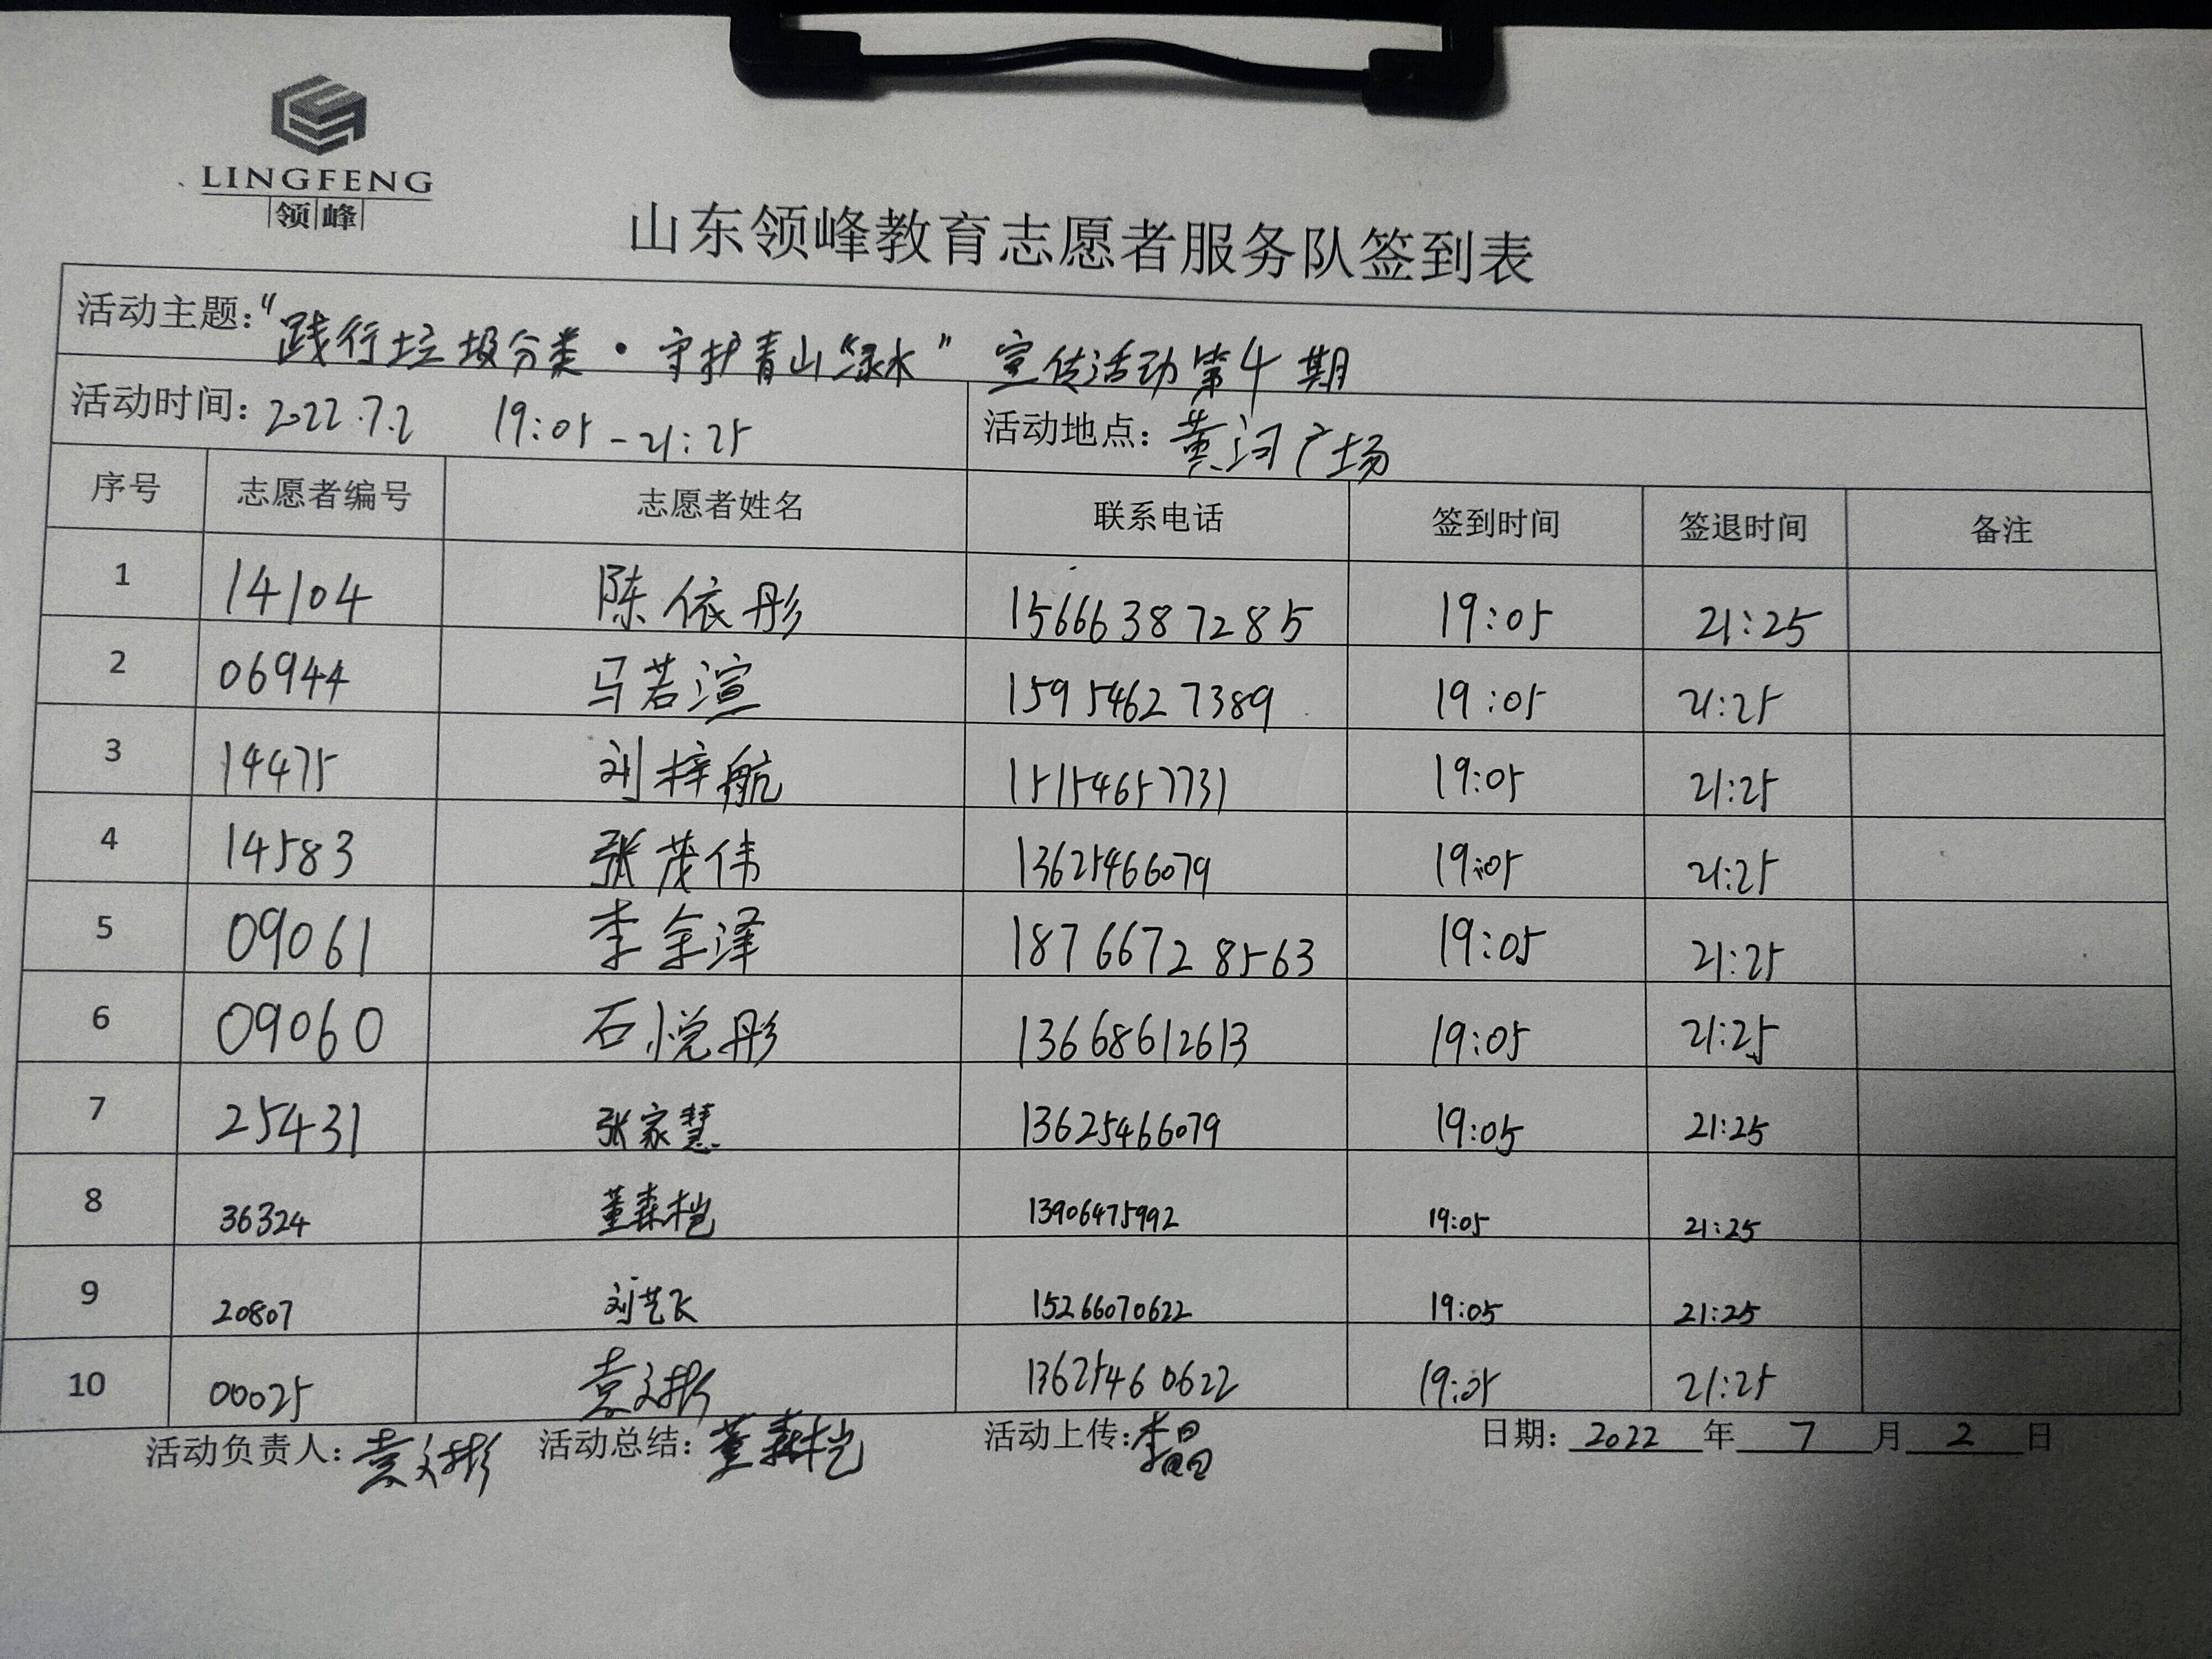 LINGFENG
领峰
山东领峰教育志愿者服务队签到表
活动主题:“践行垃圾分类·守护青山绿水”宣传活动第4期
活动时间: 2022.7.2 19:05-21:25 活动地点: 黄河广场
序号 志愿者编号 志愿者姓名 联系电话 签到时间 签退时间 备注
1 14104 陈依彤 15666387285 19:05 21:25
2 06944 马若渲 15954627389 19:05 21:25
3 14475 刘梓航 15154657731 19:05 21:25
4 14583 张茂伟 13625466079 19:05 21:25
5 09061 李金泽 18766728563 19:05 21:25
6 09060 石悦彤 13668612613 19:05 21:25
7 25431 张家慧 13625466079 19:05 21:25
8 36324 董森恺 13906475992 19:05 21:25
9 20807 刘艺飞 15266070622 19:05 21:25
10 00025 袁文彬 13625460622 19:05 21:25
活动负责人: 袁文彬 活动总结: 董森恺 活动上传: 李晶 日期: 2022 年 7 月 2 日